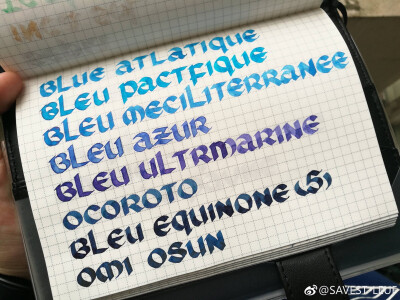 BLUE ATLATIQUE
BLEU PACTFIQUE
BLEU MECILITERRANEE
BLEU AZUR
BLEU ULTRMARINE
OCOROTO
BLEU EQUINONE (5)
OMI OSUN